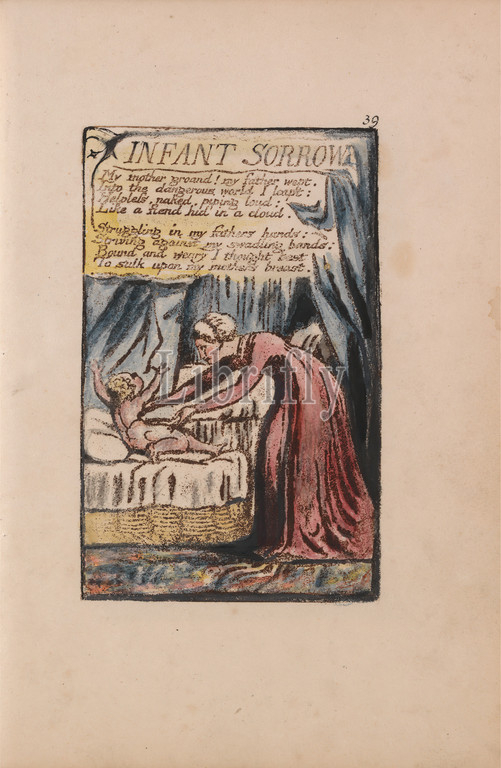 39
INFANT SORROW
My mother groand! my father wept.
Into the dangerous world I leapt:
Helpless, naked, piping loud:
Like a fiend hid in a cloud.
Struggling in my fathers hands:
Striving against my swadling bands:
Bound and weary I thought best
To sulk upon my mothers breast.
Librifly